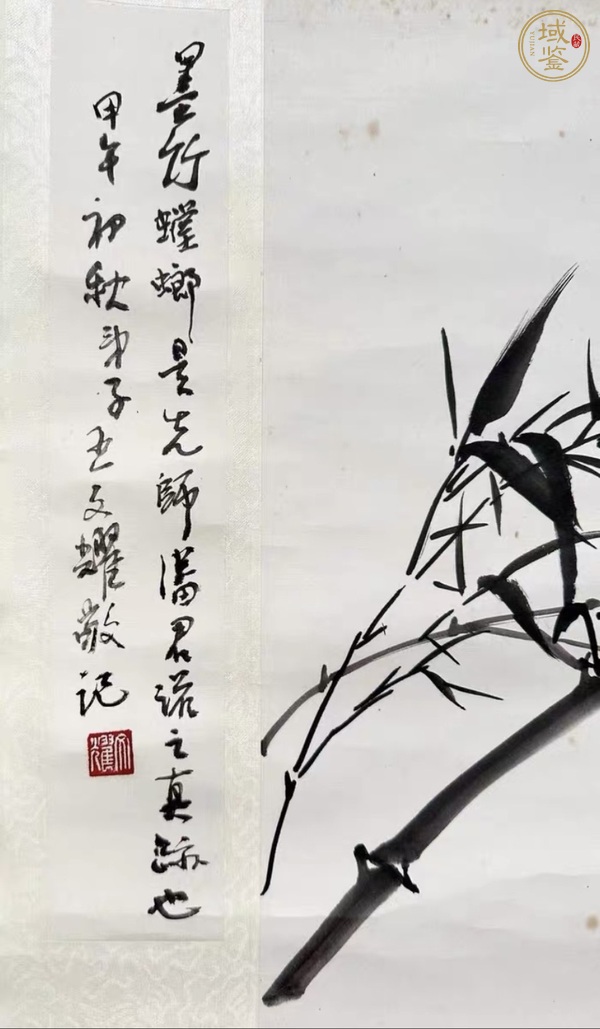 墨竹螳螂是先師潘君諾之真跡也
甲午初秋弟子王文耀敬記
文耀
域鉴
YUJIAN